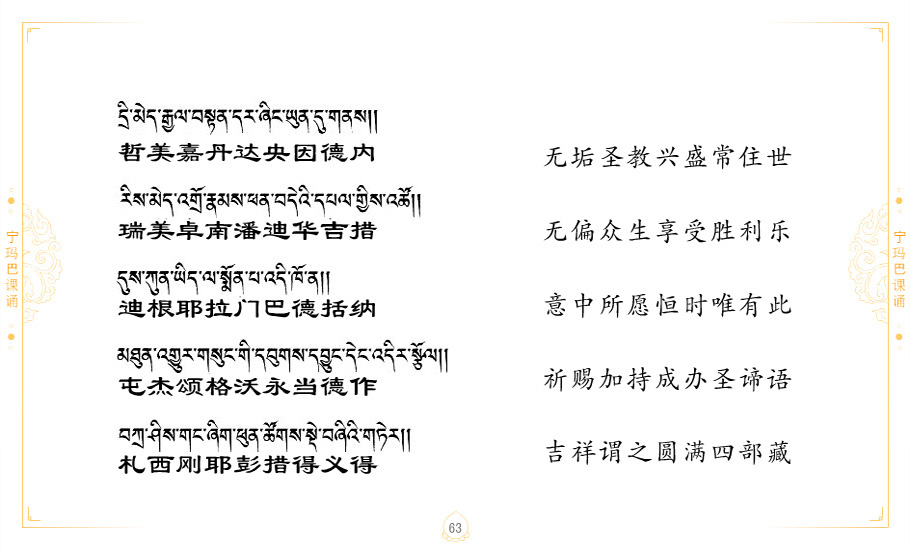 དྲི་མེད་རྒྱལ་བསྟན་དར་ཞིང་ཡུན་དུ་གནས།།
哲美嘉丹达央因德内
无垢圣教兴盛常住世
རིས་མེད་འགྲོ་རྣམས་ཕན་བདེའི་དཔལ་གྱིས་འཚོ།།
瑞美卓南潘迪华吉措
无偏众生享受胜利乐
དུས་ཀུན་ཡིད་ལ་སྨོན་པ་འདི་ཁོ་ན།།
迪根耶拉门巴德括纳
意中所愿恒时唯有此
མཐུན་འགྱུར་གསུང་གི་དབུགས་དབྱུང་དེང་འདིར་སྩོལ།།
屯杰颂格沃永当德作
祈赐加持成办圣谛语
བཀྲ་ཤིས་གང་ཞིག་ཕུན་ཚོགས་སྡེ་བཞིའི་གཏེར།།
札西刚耶彭措得义得
吉祥谓之圆满四部藏
宁玛巴课诵
宁玛巴课诵
63